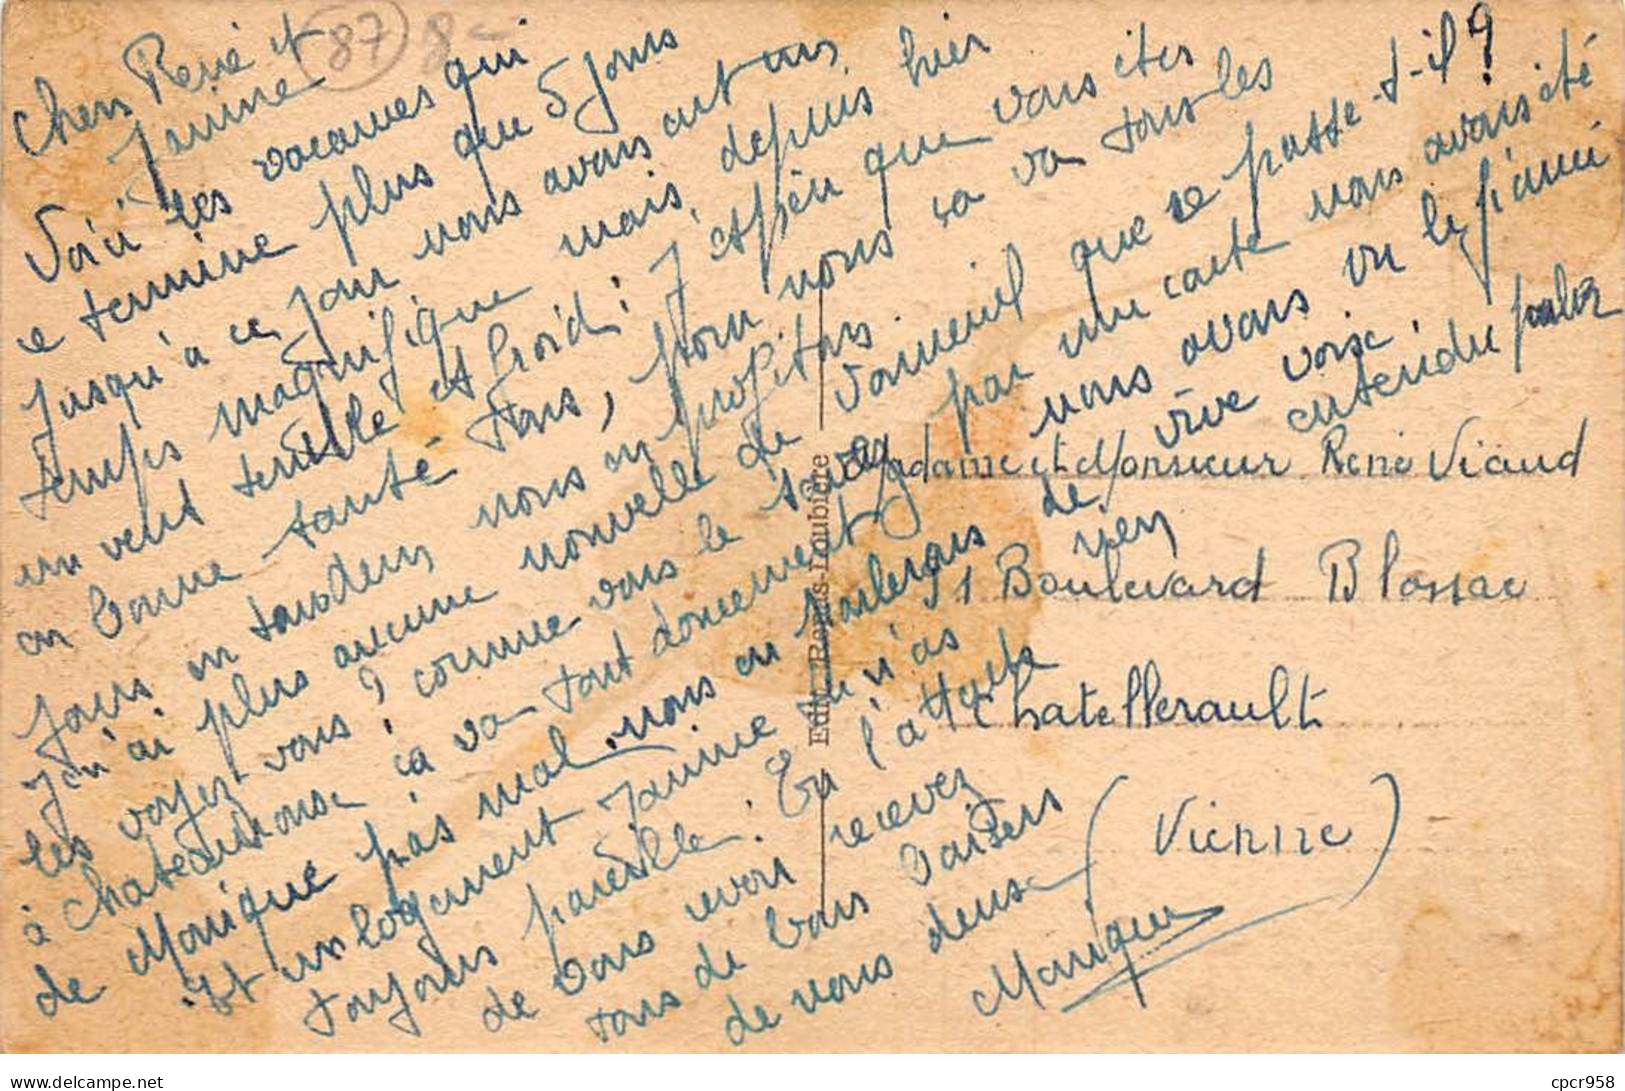 87 8-
Chers René et
Janine
Voici les vacances qui
se termine plus que 5 jours
Jusqu'à ce jour nous avons eut un
temps magnifique mais, depuis hier
un vent terrible et froid! J'espère que vous êtes
en bonne santé tous, pour nous ça va tous les
jours en nous en profitons.
J'ai plus aucune nouvelle de Vonneuil que se passe-t-il?
les voyez vous? comme vous le savez par une carte nous avons été
à Chateau nous avons vu le fiancé
de Monique ça va tout doucement vive voix
pas mal, nous en parlerons de
Et un logement Janine tu n'as rien entendu parler
toujours pareille! En l'attente
de vous revoir recevez
tous de bons baisers
de nous deux
Monique
Edit. Remis-Loubière
Madame et Monsieur René Viaud
51 Boulevard Blossac
Chatellerault
(Vienne)
cpcr958